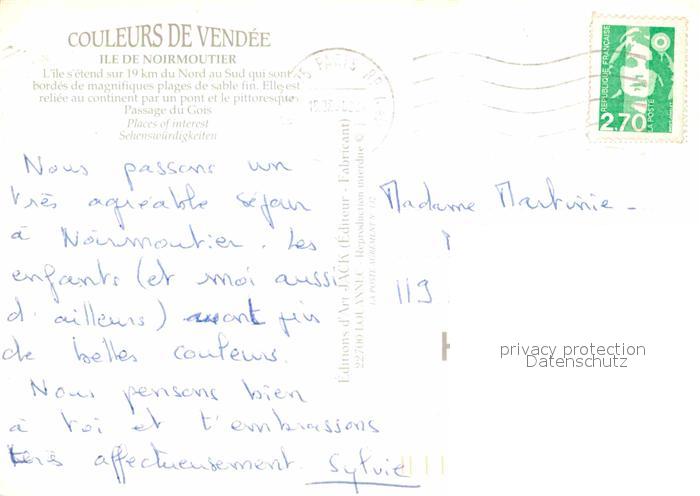 COULEURS DE VENDÉE
ILE DE NOIRMOUTIER
L'île s'étend sur 19 km du Nord au Sud qui sont
bordés de magnifiques plages de sable fin. Elle est
reliée au continent par un pont et le pittoresque
Passage du Gois
Places of interest
Sehenswürdigkeiten
Nous passons un
très agréable séjour
à Noirmoutier. Les
enfants (et moi aussi
d'ailleurs) ont pris
de belles couleurs.
Nous pensons bien
à toi et t'embrassons
très affectueusement. Sylvie
Editions d'Art JACK (Éditeur - Fabricant)
22790 LOUANNEC - Reproduction interdite ©
LA POSTE AGREMENT N°
PARIS RP
RÉPUBLIQUE FRANÇAISE
2,70
LA POSTE
Madame Martinie -
119
privacy protection
Datenschutz